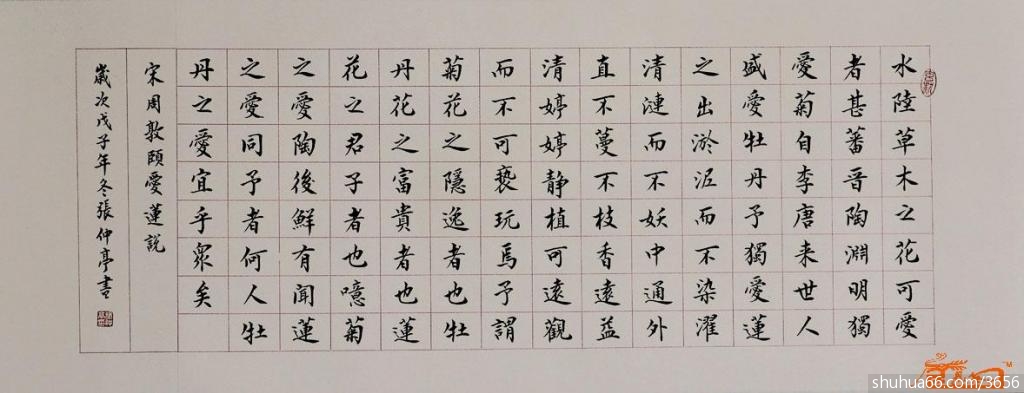 水陸草木之花可愛
者甚蕃晋陶淵明獨
愛菊自李唐来世人
盛愛牡丹予獨愛蓮
之出淤泥而不染濯
清漣而不妖中通外
直不蔓不枝香遠益
清婷婷静植可遠觀
而不可亵玩焉予謂
菊花之隱逸者也牡
丹花之富貴者也蓮
花之君子者也噫菊
之愛陶後鮮有聞蓮
之愛同予者何人牡
丹之愛宜乎眾矣
宋周敦頤愛蓮説
歲次戊子年冬張仲亭書
shuhua66.com/3656